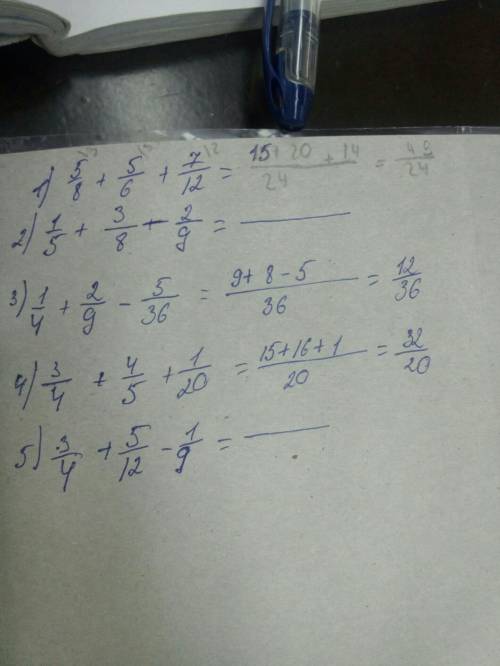 1) 5/8 + 5/6 + 7/12 = (15 + 20 + 14)/24 = 49/24
2) 1/5 + 3/8 - 2/9 =
3) 1/4 + 2/9 - 5/36 = (9 + 8 - 5)/36 = 12/36
4) 3/4 + 4/5 + 1/20 = (15 + 16 + 1)/20 = 32/20
5) 3/4 + 5/12 - 1/9 =